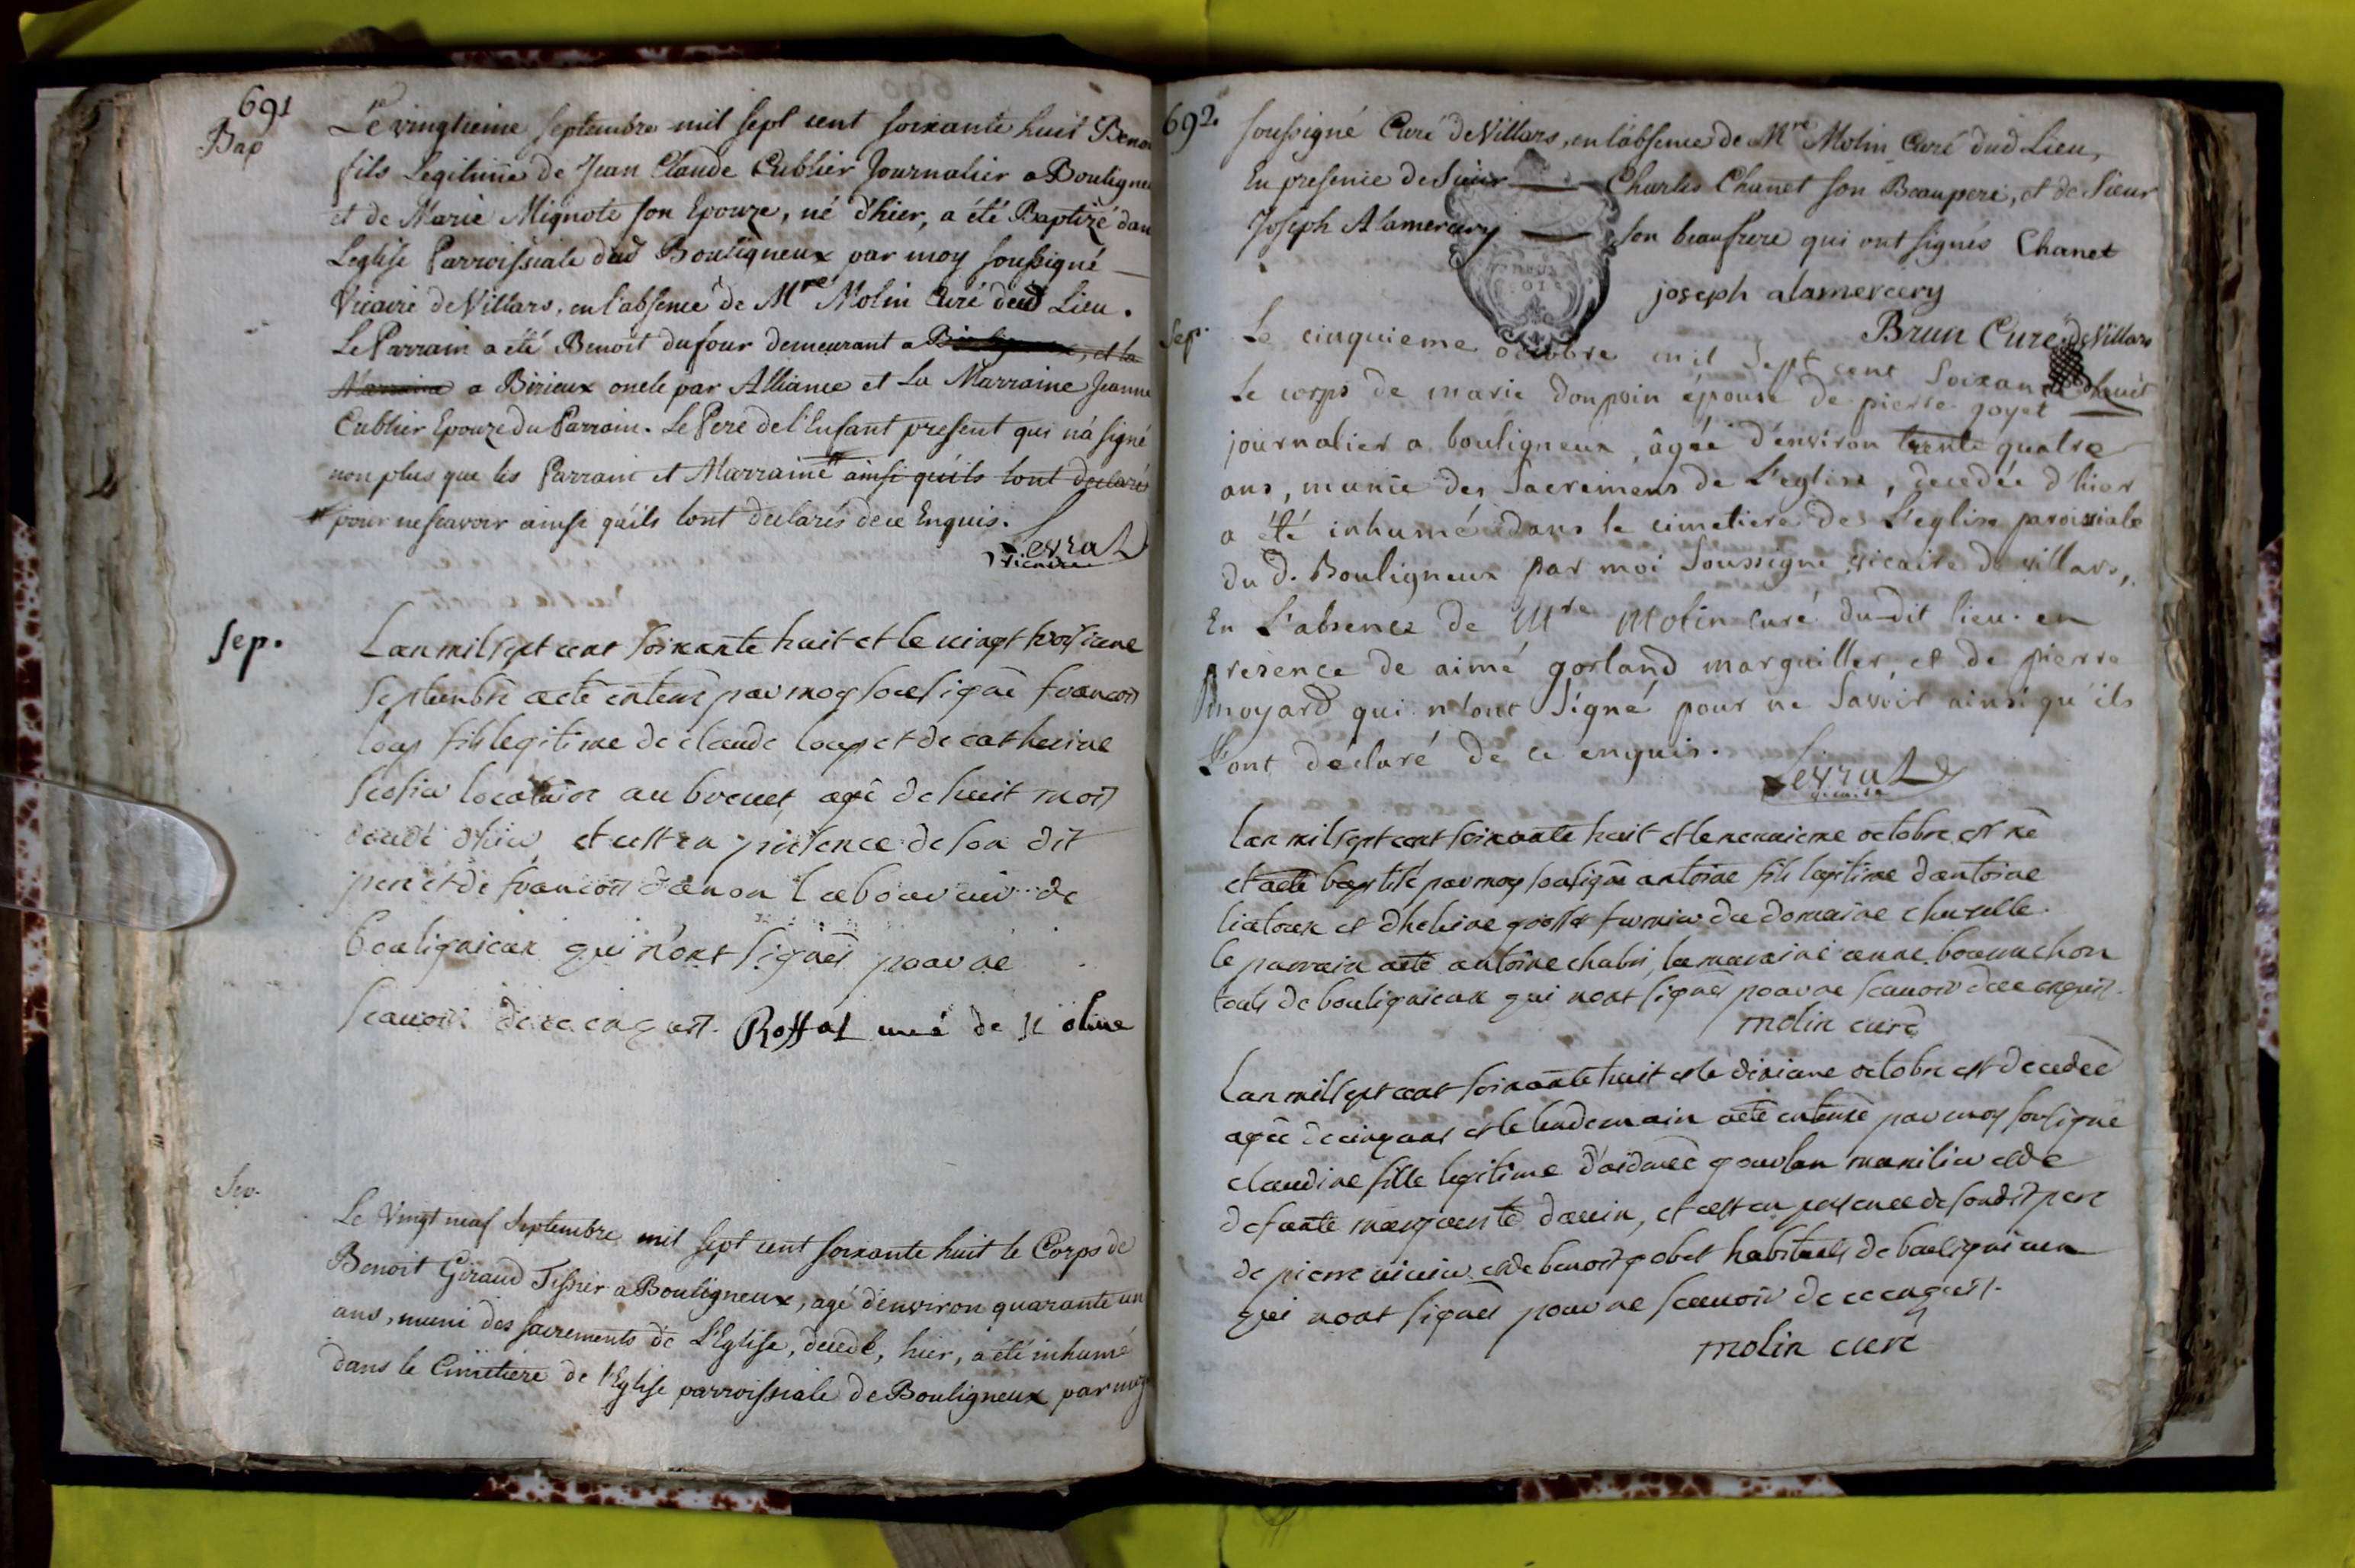 691
Bap
Le vingtieme septembre mil sept cent soixante huit Benoi
fils Legitime de Jean Claude Cublier Journalier a Bouligneu
et de Marie Mignote son Epouze, né d'hier, a été Baptizé dan
L'eglise Parroissiale dud Bouligneux par moy soussigné
Vicaire de Villars, en l'absence de Mre Molin Curé dud Lieu.
Le Parrain a été Benoit dufour demeurant a Bouligneux, et la
Marraine a Birieux oncle par Alliance et La Marraine Jeanne
Cublier Epouze du Parrain. Le Pere de l'Enfant present qui n'a signé
non plus que les Parrain et Marraine ainsi qu'ils l'ont declaré
pour ne scavoir ainsi qu'ils l'ont declarés de ce Enquis.
Levrat
vicaire
Sep.
Lan mil sept cent soixante huit et le vingt troisieme
septembre a eté enterré par moy sousigné francois
loup fils legitime de claude loup et de catherine
locataire au brevet, agé de huit mois
decedé d'hier et cest en presence de son dit
pere et de francois danon laboureur de
bouligneux qui n'ont signés pour ne
scauoir de ce enquis. Roffat curé de st olive
Sep.
Le Vingt neuf Septembre mil sept cent soixante huit le Corps de
Benoit Giraud Tissier a Bouligneux, agé d'environ quarante un
ans, muni des sacrements de L'Eglise, decedé, hier, a été inhumé
dans le Cimetiere de l'Eglise parroissiale de Bouligneux par moy
692.
soussigné Curé de Villars, en l'absence de Mre Molin Curé dud Lieu,
En presence de Sieur Charles Chanet son Beaupere, et de Sieur
Joseph Alamercery son beaufrere qui ont signés Chanet
joseph alamercery
Brun Curé de Villars
Sep.
Le cinquieme octobre mil sept cent soixante huit
le corps de marie donpoin épouse de pierre goyet
journalier a bouligneux, âgée d'environ trente quatre
ans, munie des Sacremens de L'eglise, decedée d'hier
a été inhumé dans le cimetiere de L'eglise paroissiale
du d. Bouligneux par moi Soussigné vicaire de villars,
En L'absence de Mre Molin curé du dit lieu. en
presence de aimé gorland marguiller et de pierre
moyard qui n'ont Signé pour ne Savoir ainsi qu'ils
L'ont déclaré de ce enquis.
Levrat
vicaire
Lan mil sept cent soixante huit et le neuvieme octobre est né
et a eté baptisé par moy sousigné antoine fils legitime dantoine
et dhelene fermier du domaine
le parrain a eté antoine chabri, la maraine anne bouuuchon
touts de bouligneux qui nont signés pour ne scauoir de ce enquis.
molin curé
Lan mil sept cent soixante huit et le dixieme octobre est decedée
agée de cinq ans et le lendemain a eté enterré par moy sousigné
claudine fille legitime d'aidmé gourlan manilier et de
defunte marguerite dauin, et cest en presence de son dit pere
de pierre et de benoit gobet habitants de bouligneux
qui nont signés pour ne scauoir de ce enquis.
molin curé